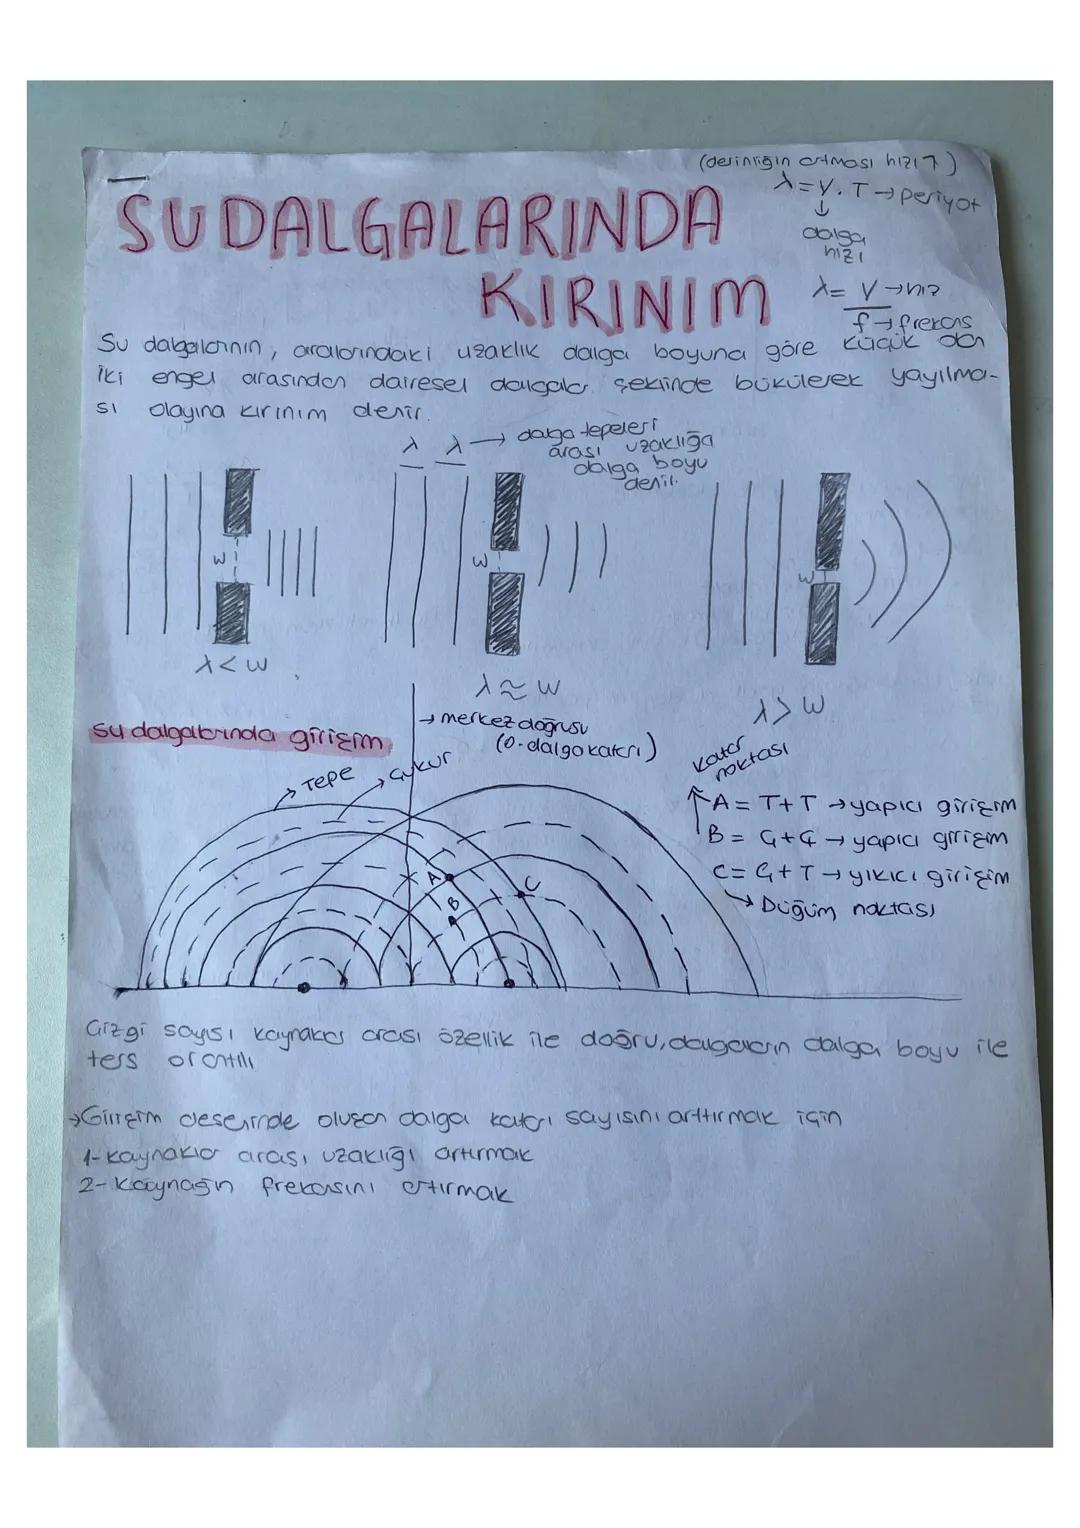 (derinliğin artması hızı↑)
λ=V.T→periyot
↓
dalga
hızı
λ= V→hız
f→frekans
SU DALGALARINDA
KIRINIM
Su dalgalarının, aralarındaki uzaklık dalga boyuna göre küçük olan
iki engel arasından dairesel dalgalar şeklinde bükülerek yayılma-
sı olayına kırınım denir.
λ λ → dalga tepeleri
arası uzaklığa
dalga boyu
denir.
w w w
λ<w
λ≈w
λ>w
su dalgalarında girişim
→merkez doğrusu
(0.dalga katarı)
→Tepe →Çukur
Katar
noktası
↑A= T+T →yapıcı girişim
B= Ç+Ç → yapıcı girişim
C= Ç+T→yıkıcı girişim
→ Düğüm noktası
A
B
C
Çizgi sayısı kaynaklar arası özellik ile doğru, dalgaların dalga boyu ile
ters orantılı
→Girişim deseninde oluşan dalga katarı sayısını arttırmak için
1-kaynaklar arası uzaklığı artırmak
2-Kaynağın frekansını artırmak